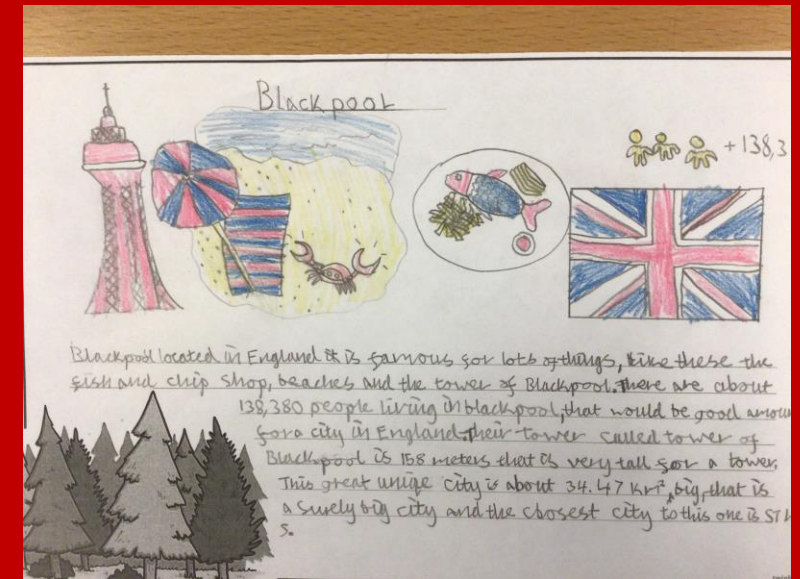 Blackpool
+138,3
Blackpool located in England it is famous for lots of things, like these the
fish and chip shop, beaches and the tower of Blackpool. There are about
138,380 people living in blackpool, that would be good amou
for a city in England. Their tower called tower of
Blackpool is 158 meters that is very tall for a tower.
This great unique city is about 34.47 km², big, that is
a surely big city and the closest city to this one is ST
s.